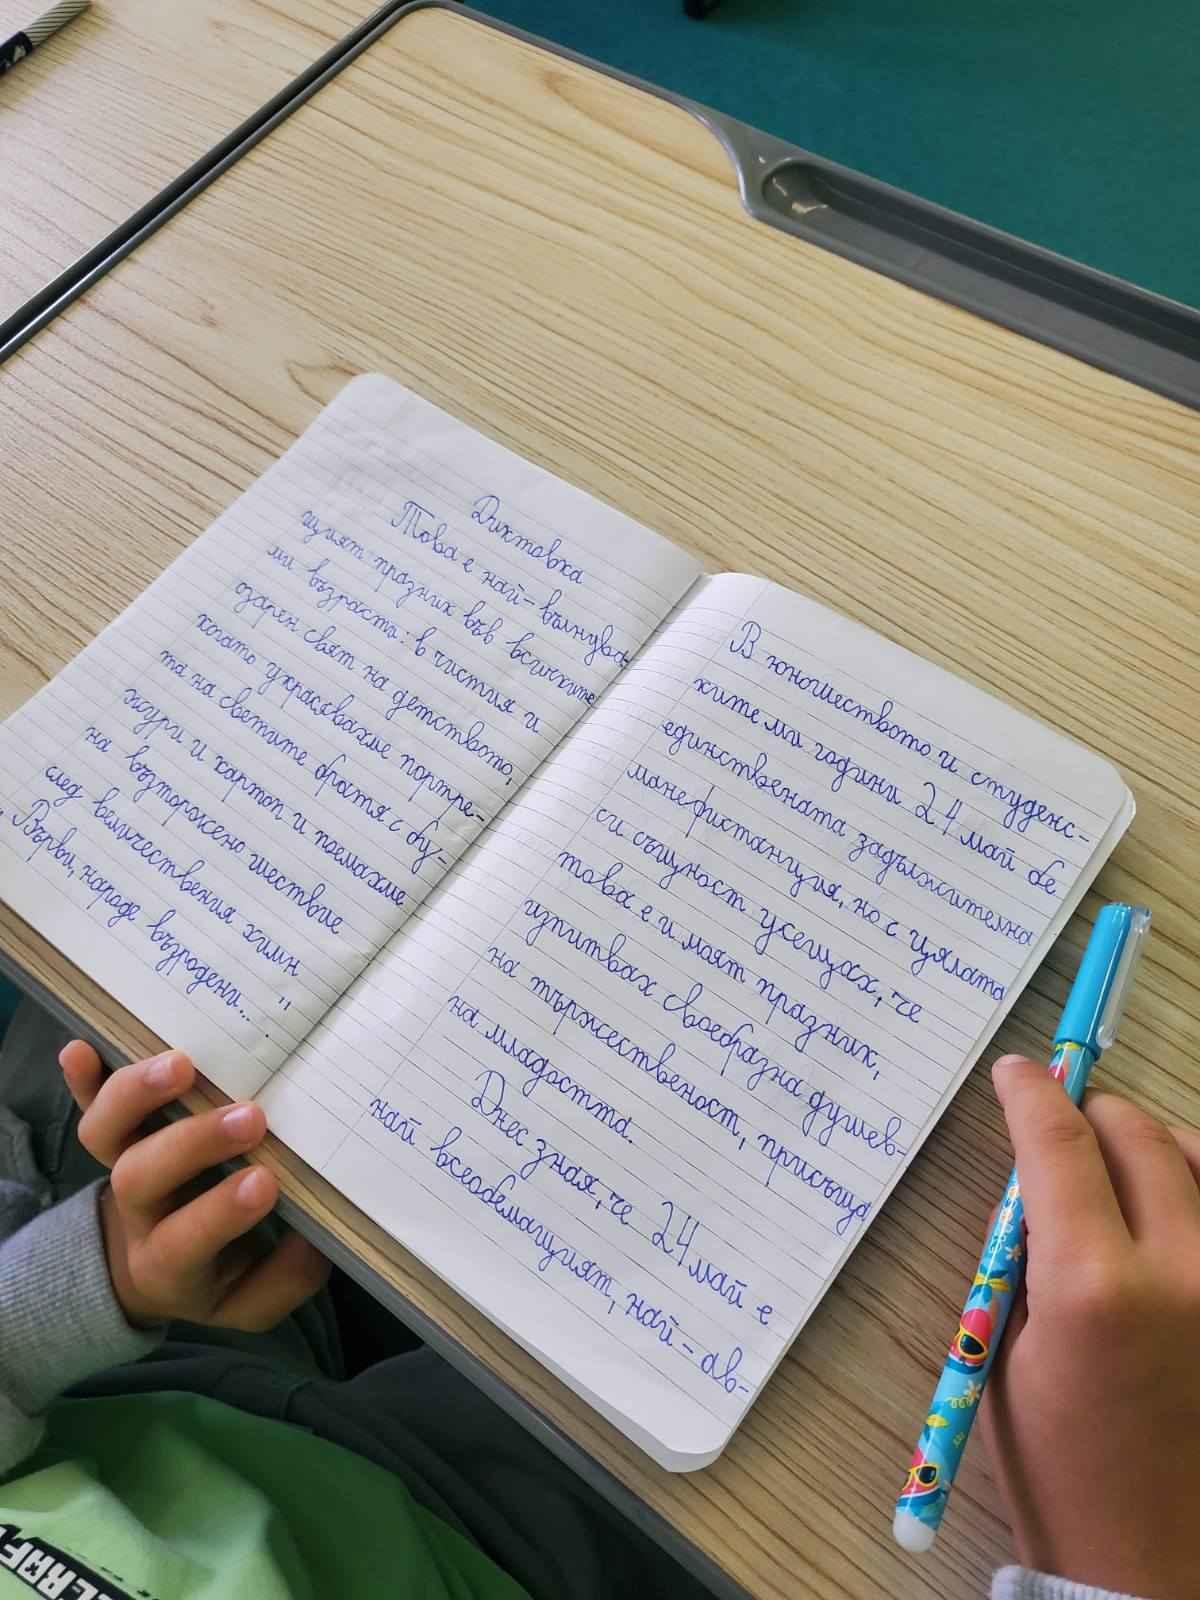 Диктовка
Това е най-вълнува-
щият празник във всичките
ми възрасти: в чистия и
озарен свят на детството,
когато украсявахме портре-
та на светите братя с бу-
жури и картоп и поемахме
на възторжено шествие
след величествения химн
„Върви, народе възродени... "
.
В юношеството и студенс-
ките ми години 24 май бе
единствената задължителна
манефистанция, но с цялата
си същност усещах, че
това е и моят празник,
изпитвах своеобразна душев-
на тържественост, присъща
на младостта.
Днес зная, че 24 май е
най всеобемащият, най-ав-